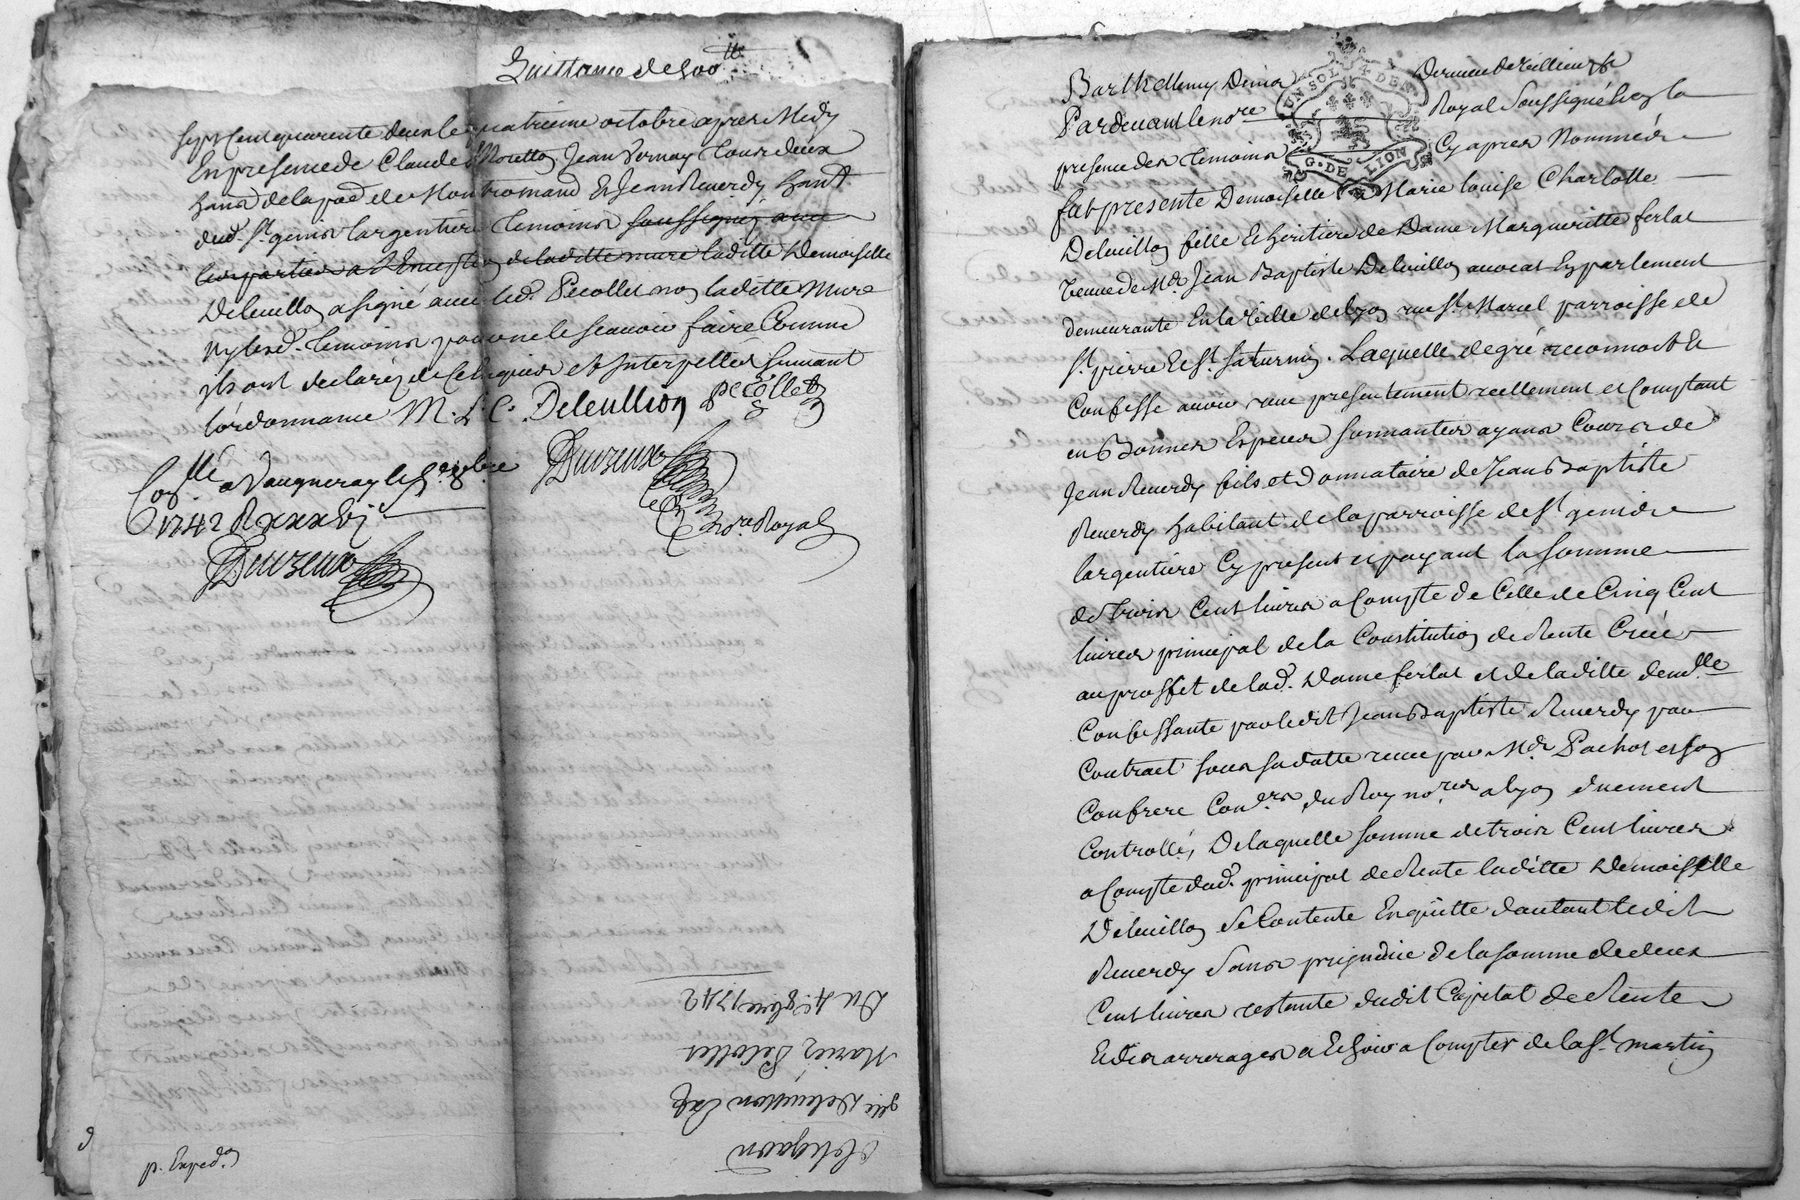 Quittance de 500ᵗᵗ
sept Cent quarente deux le quatrieme octobre apres Midy
En presence de Claude Noretton Jean Vernay Tous deux
hans de la pad de Montromand Et Jean Reverdy hant
dud. St. genis largentiere Temoins soussignez avec
les parties a l'Exception de laditte mure laditte Demoiselle
Deleullion a signé avec led. Pecollet non laditte Mure
ny lesd. Temoins pour ne le scavoir faire Comme
ils ont declaréz de Ce Enquis et Interpellés suivant
l'ordonnance M. L. C. Deleullion Pecollet
Duvzeux
no.re Royal
Con.llé a Vaugneray le 8bre
1742 R xxx
Duvzeux
Du 4e. 8bre 1742
Mariez Pecollet
Dlle Deleullion
Obligaon
p. Exped.on
Barthellemy Denis
Pardevant le no.re Royal Soussigné
presence des Temoins Cy apres Nommés
UN SOL 4 DEN.
G. DE LION
fut presente Demoiselle Marie louise Charlotte
Deleullion fille Et heritiere de Dame Margueritte ferlat
Veuve de Me. Jean Baptiste Deleullion avocat En parlement
demeurante En la Ville de lyon rue St. Marcel parroisse de
St. pierre Et St. saturnin. Laquelle de gré reconnoit Et
Confesse avoir receu presentement reellement et Comptant
en Bonnes Especes sonnantes ayans Cours de
Jean Reverdy fils et Donnataire de Jean Baptiste
Reverdy habitant de la parroisse de St genis
largentiere Cy present et payant la somme
de Trois Cent livres a Compte de Celle de Cinq Cent
livres principal de la Constitution de Rente Creée
au proffet de lad. Dame ferlat et de laditte dem.lle
Confessante par ledit Jean Baptiste Reverdy par
Contract sous sa datte receu par Me. Pachot et son
Confrere Con.ers du Roy no.res a lyon duement
Controllé, De laquelle somme de trois Cent livres
a Compte dud. principal de Rente laditte Demoiselle
Deleullion se Contente En quitte d'autant ledit
Reverdy sans prejudice de la somme de deux
Cent livres restante dudit Capital de Rente
Et des arrerages a Echoir a Compter de la St. martin